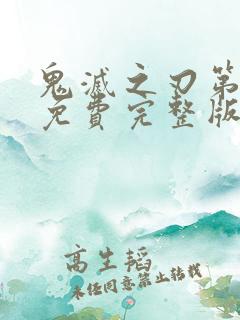 鬼滅之刃第
免費完整版
高生韬
未经同意禁止转载